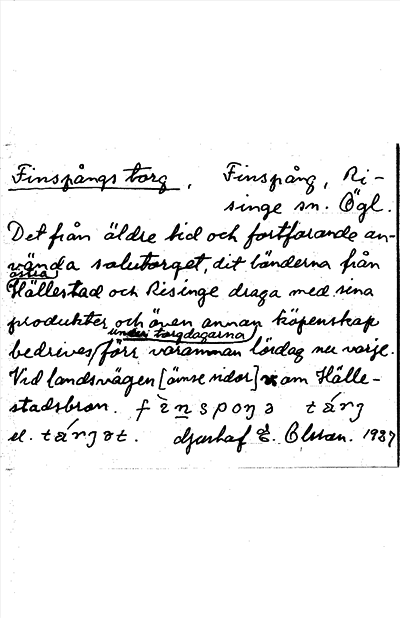 Finspångs torg, Finspång, Ri-
singe sn. Ögl.
Det från äldre tid och fortfarande an-
vända salutorget, dit bönderna från
östra
Hällestad och Risinge draga med sina
produkter och även annan köpenskap
under torgdagarna
bedrives, förr varannan lördag nu varje.
Vid landsvägen [ ] om Hälle-
stadsbron. fìnspoŋə tárj
el. tárjət. E. Olsson. 1937